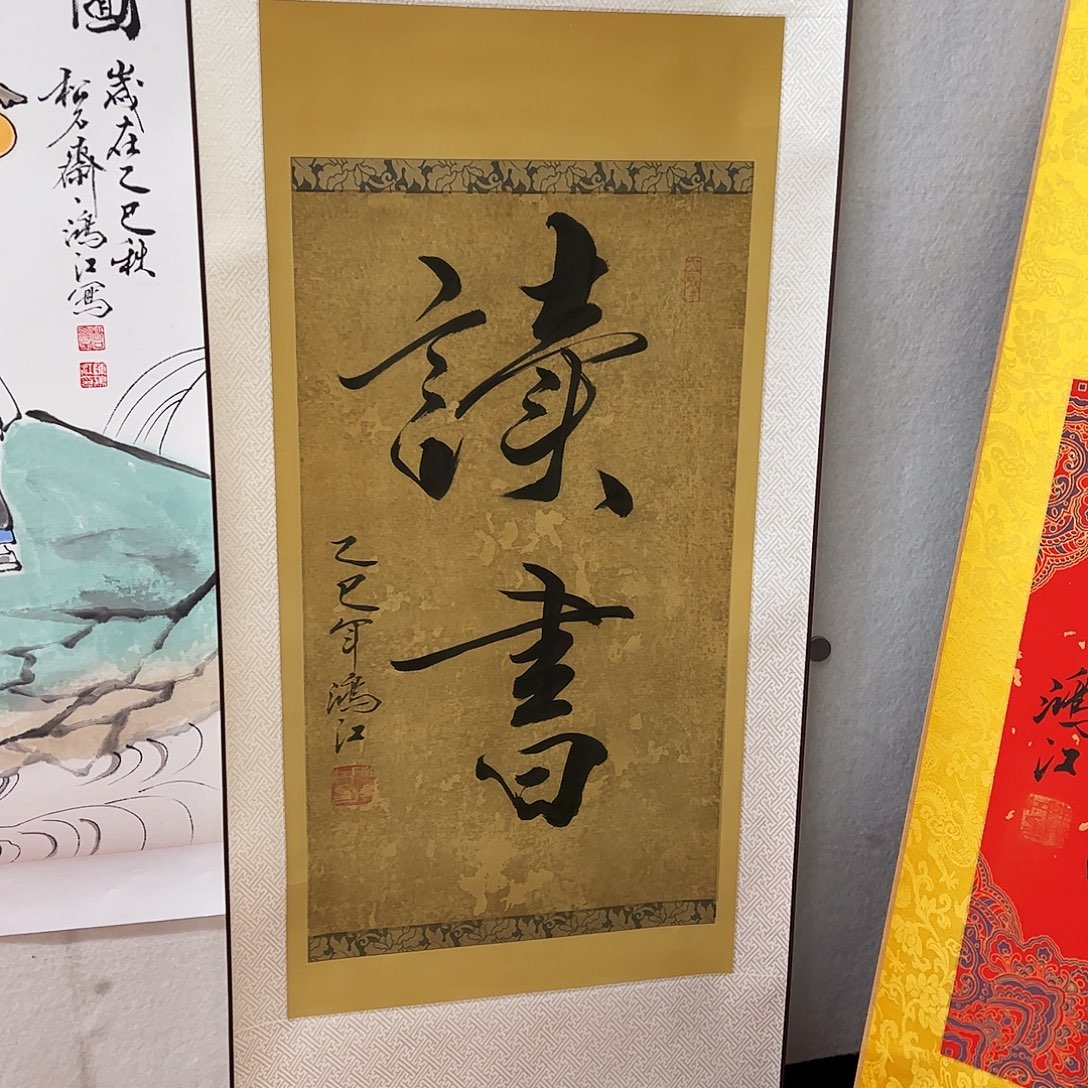 圖
歲在乙巳秋
松石齋鴻江寫
讀書
乙巳年鴻江
鴻江